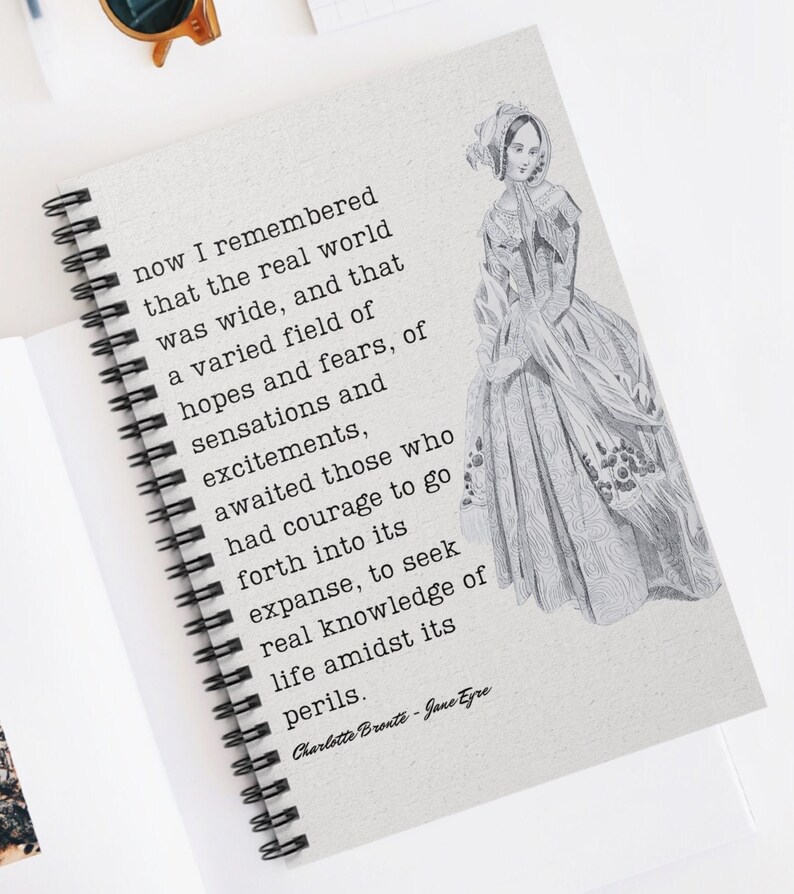 now I remembered
that the real world
was wide, and that
a varied field of
hopes and fears, of
sensations and
excitements,
awaited those who
had courage to go
forth into its
expanse, to seek
real knowledge of
life amidst its
perils.
Charlotte Brontë - Jane Eyre